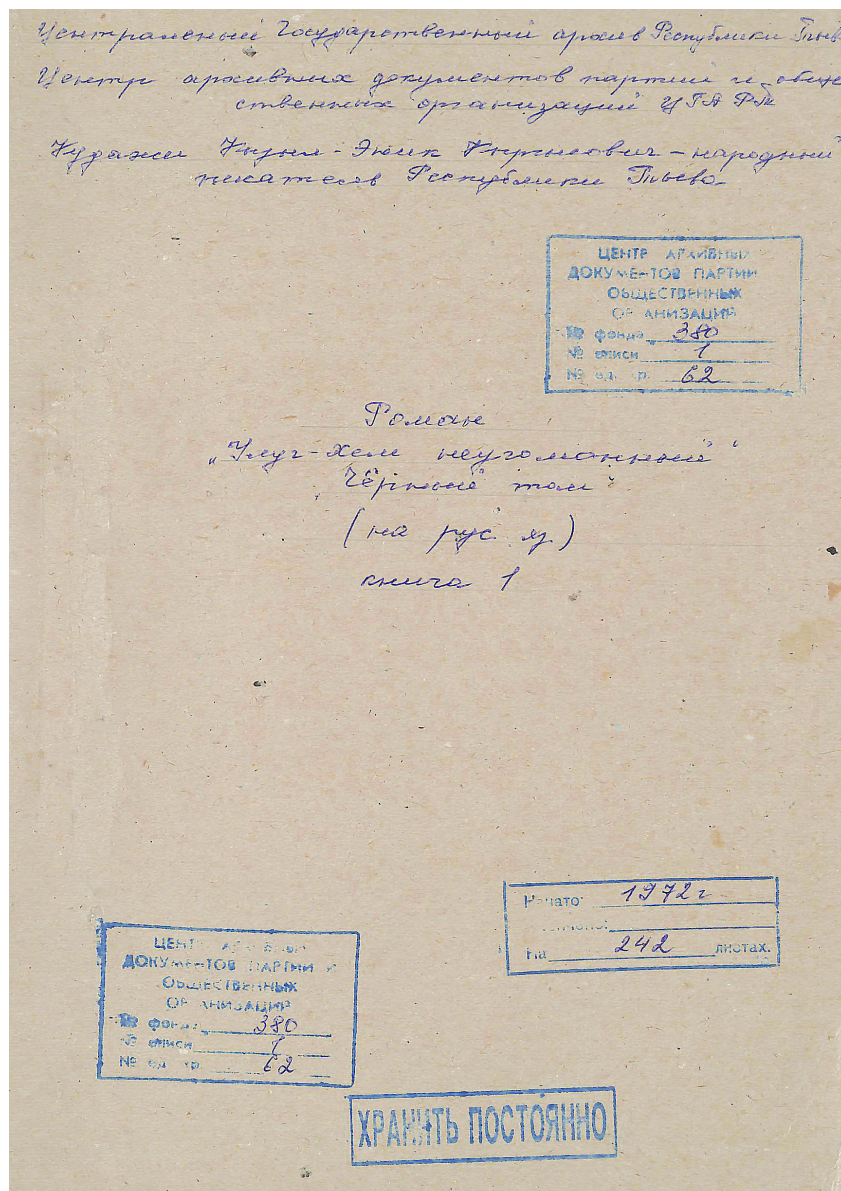 Центральный Государственный архив Республики Тыв
Центр архивных документов партий и общe
ственных организаций ЦГА РТ
Кудажи Кызыл-Эник Кыргысович - народный
писатель Республики Тыва
ЦЕНТР АРХИВНЫХ
ДОКУМЕНТОВ ПАРТИИ
ОБЩЕСТВЕННЫХ
ОРГАНИЗАЦИЙ
№ фонда 380
№ описи 1
№ ед. хр. 62
Роман
„Улуг-Хем неугомонный"
„Чёрный том"
(на рус яз)
книга 1
Начато: 1972 г
На 242 листах.
ЦЕНТР АРХИВНЫХ
ДОКУМЕНТОВ ПАРТИИ И
ОБЩЕСТВЕННЫХ
ОРГАНИЗАЦИЙ
№ фонда 380
№ описи 1
№ ед. хр. 62
ХРАНИТЬ ПОСТОЯННО